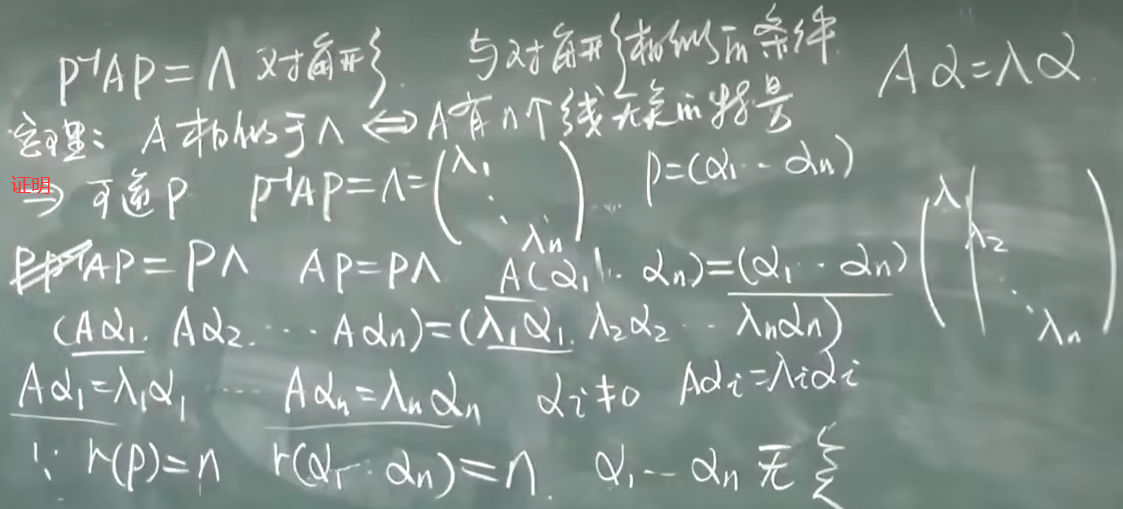 P⁻¹AP=Λ 对角形 与对角形相似的条件 Aα=λα
定理: A相似于Λ ⇔ A有n个线无关的特
证明
⇒ 可逆P P⁻¹AP=Λ=(λ₁ ⋱ λₙ) P=(α₁⋯αₙ)
PP⁻¹AP=PΛ AP=PΛ A(α₁⋯αₙ)=(α₁⋯αₙ)(λ₁ λ₂ ⋱ λₙ)
(Aα₁. Aα₂. ⋯ Aαₙ)=(λ₁α₁. λ₂α₂ ⋯ λₙαₙ)
Aα₁=λ₁α₁ ⋯ Aαₙ=λₙαₙ αᵢ≠0 Aαᵢ=λᵢαᵢ
∵ r(P)=n r(α₁⋯αₙ)=n. α₁⋯αₙ 无